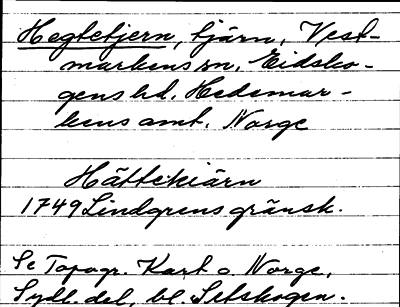 Hegtetjern, tjärn, Vest-
markens sn, Eidsko-
gens hd, Hedemar-
kens amt, Norge
Hättekiärn
1749 Lindgrens gränsk.
Se Topogr. Kart o. Norge,
Sydl. del, bl. Setskogen.